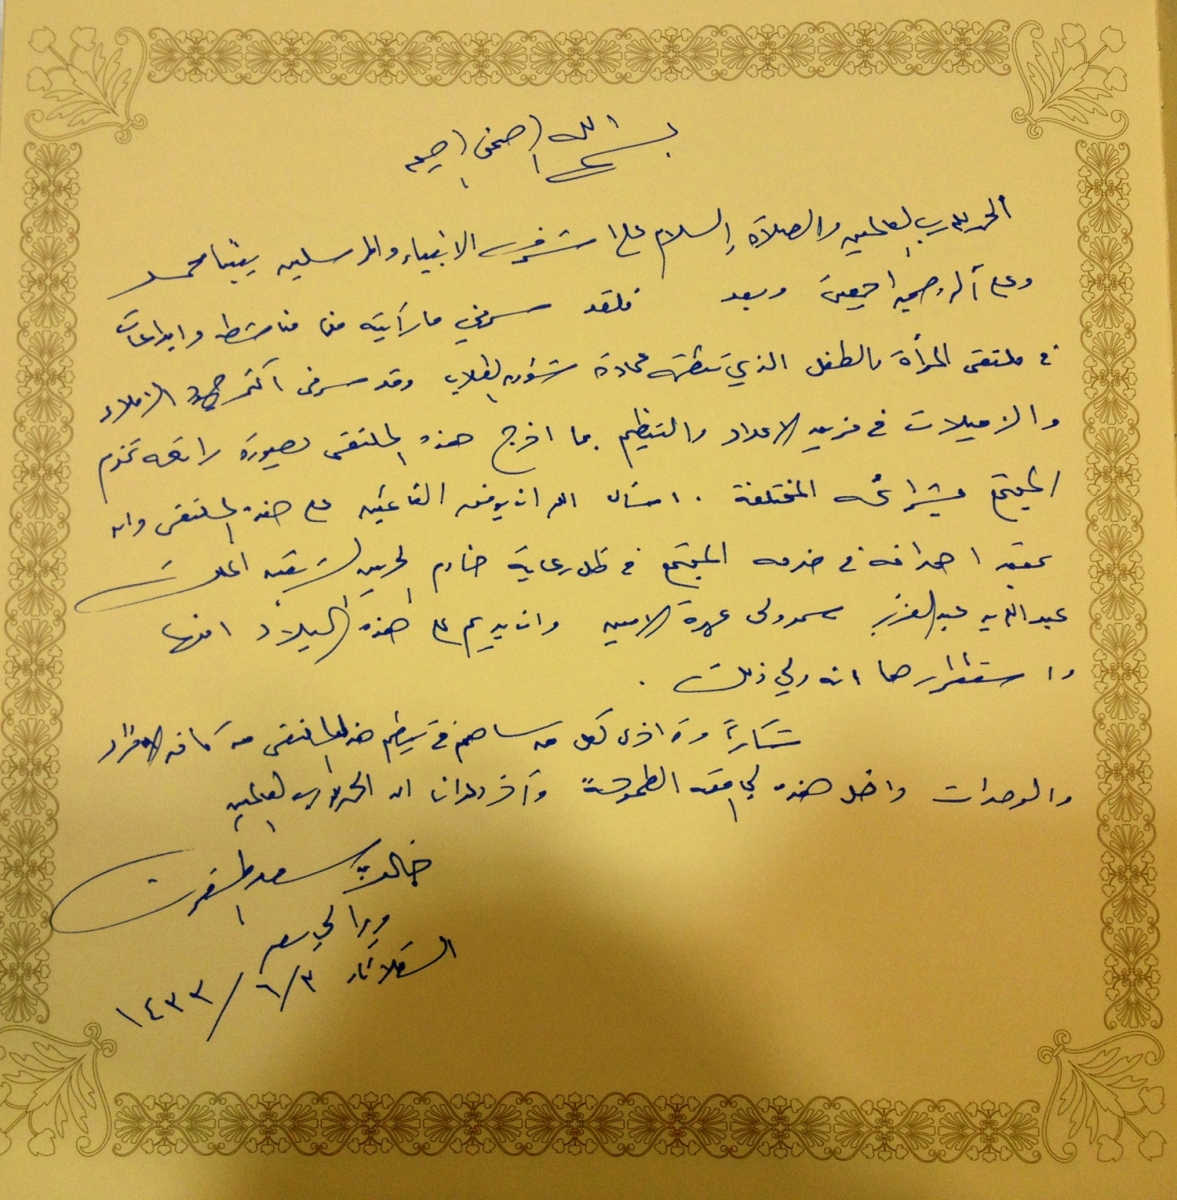 بسم الله الرحمن الرحيم
الحمد لله رب العالمين والصلاة والسلام على اشرف الانبياء والمرسلين نبينا محمد
وعلى آله وصحبه اجمعين وبعد فلقد سرني ما رأيته من مناشط وابداعات
في ملتقى المرأة والطفل الذي تنظمه عمادة شؤون الطلاب وقد سرني اكثر جهود الزملاء
والزميلات في الاعداد والتنظيم بما اخرج هذا الملتقى بصورة رائعة تخدم
المجتمع بشرائحه المختلفة . اسأل الله ان يوفق القائمين على هذا الملتقى وان
يحقق اهدافه في خدمة المجتمع في ظل رعاية خادم الحرمين الشريفين الملك
عبدالله بن عبدالعزيز وسمو ولي عهده الامين وان يديم على هذه البلاد امنها
واستقرارها انه ولي ذلك .
شكراً مرة اخرى لكل من ساهم في تنظيم هذا الملتقى من كافة الافراد
والوحدات داخل هذه الجامعة الطموحة وآخر دعوانا ان الحمد لله رب العالمين
خالد بن سعد المقرن
مدير الجامعة
الثلاثاء ٣/٦/١٤٣٣